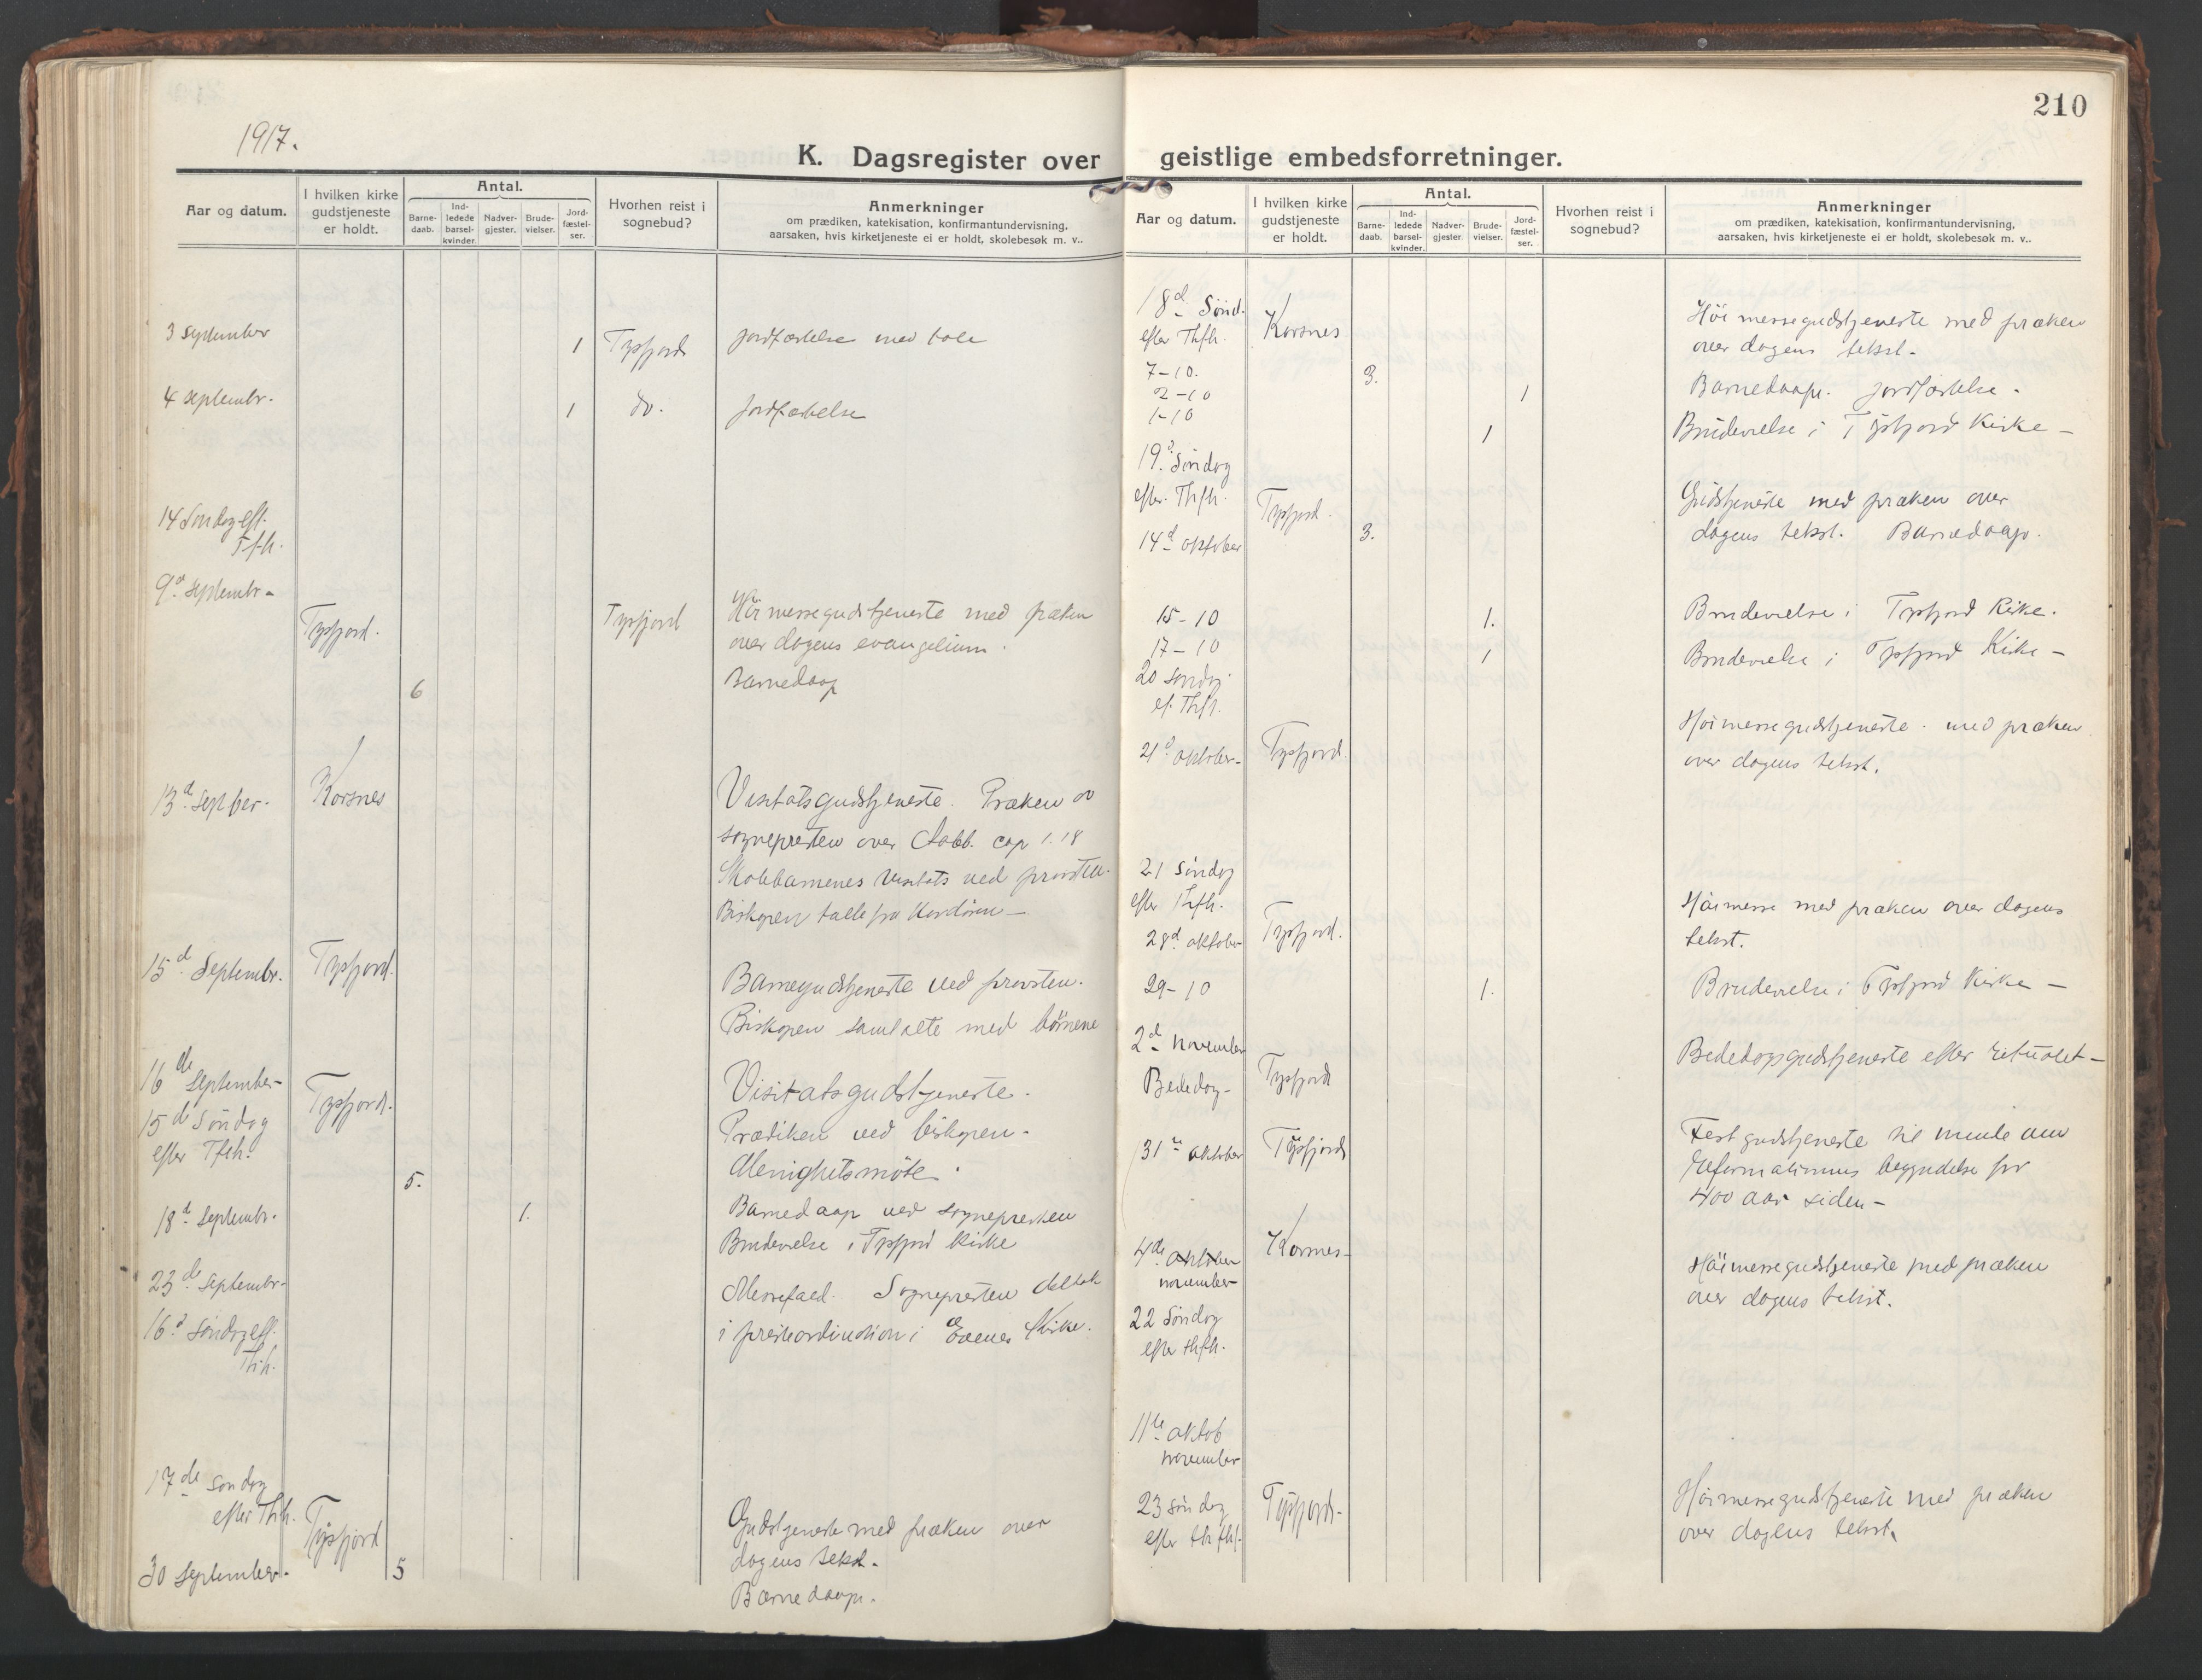 210
1917.
K. Dagsregister over geistlige embedsforretninger.
Aar og datum.
I hvilken kirke gudstjeneste er holdt.
Antal.
Barne-daab.
Ind-ledede barsel-kvinder.
Nadver-gjester.
Brude-vielser.
Jord-fæstel-ser.
Hvorhen reist i sognebud?
Anmerkninger
om prædiken, katekisation, konfirmantundervisning,
aarsaken, hvis kirketjeneste ei er holdt, skolebesøk m. v..
3 september 1 Tysfjord Jordfæstelse med tale
4 septembr. 1 do. Jordfæstelse
14 Søndag eft.
Tfh.
9d septembr-
Tysfjord. Tysfjord Høimessegudstjeneste med præken
over dagens evangelium.
6 Barnedaap
13d. septber. Korsnes Visitatsgudstjeneste. Præken av
sognepresten over cap 1.18
Skolebarnenes visitats ved provsten.
Biskopen talte fra Kordøren-
15d Septembr. Tysfjord. Barnegudstjeneste ved provsten.
Biskopen samtalte med børnene
16de september- Tysfjord. Visitatsgudstjeneste.
15de Søndag Prædiken ved biskopen-
efter Tfth. Menighetsmøte.
5.
18d septembr. 1. Barnedaap ved sognepresten
Brudevielse i Tysfjord kirke
23de septembr- Messefald. Sognepresten deltok
16d søndag eft. i presteordination i Evenes Kirke.
Trih.
17de søndag
efter Trih. Tysfjord Gudstjeneste med præken over
dagens tekst.
30 september. 5 Barnedaap.
Aar og datum.
I hvilken kirke gudstjeneste er holdt.
Antal.
Barne-daab.
Ind-ledede barsel-kvinder.
Nadver-gjester.
Brude-vielser.
Jord-fæstel-ser.
Hvorhen reist i sognebud?
Anmerkninger
om prædiken, katekisation, konfirmantundervisning,
aarsaken, hvis kirketjeneste ei er holdt, skolebesøk m. v..
18d Sønd. Korsnes Høimessegudstjeneste med præken
efter Thfh. over dagens tekst.
7-10. 3.
2-10 1 Barnedaap. Jordfæstelse.
1-10 1 Brudevielse i Tysfjord Kirke-
19d. Søndag
efter. Thfh. Tysfjord. Gudstjeneste med præken over
14d oktober 3. dagens tekst. Barnedaap.
15-10 1. Brudevielse i Tysfjord Kirke.
17-10 1 Brudevielse i Tysfjord Kirke-
20 søndag
ef. Thfh. Høimessegudstjeneste med præken
21d oktober- Tysfjord. over dagens tekst.
21 søndag
efter Thfh. Høimesse med præken over dagens
28d oktober Tysfjord. tekst.
29-10 1. Brudevielse i Tysfjord Kirke-
2d november Bededagsgudstjeneste efter ritualet-
Bededag- Tysfjord
31te oktober Tysfjord Festgudstjeneste til minde om
reformationens begyndelse for
400 aar siden-
4de oktober Korsnes-
november Høimessegudstjeneste med præken
over dagens tekst.
22 Søndag
efter thfh.
11te oktob
november
23 søndag Tysfjord- Høimessegudstjeneste med præken
efter thfht. over dagens tekst.